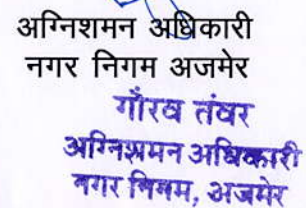 अग्निशमन अधिकारी
नगर निगम अजमेर
गौरव तंवर
अग्निशमन अधिकारी
नगर निगम, अजमेर